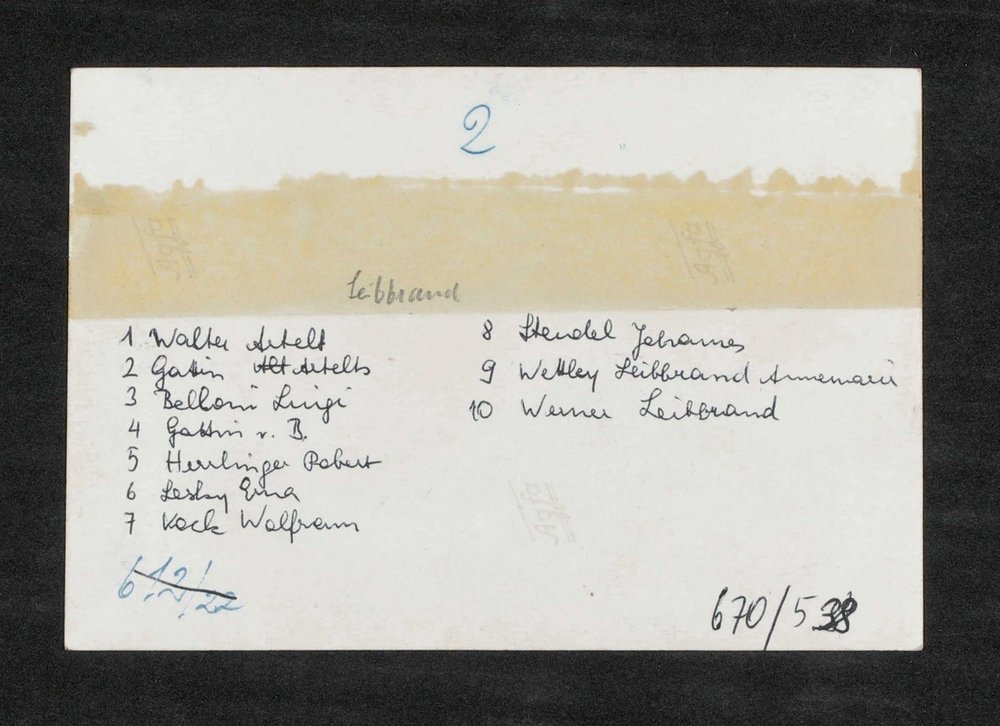 2
Leibbrand
1 Walter Artelt
2 Gattin Alt Artelts
3 Belloni Luigi
4 Gattin v. B.
5 Herrlinger Robert
6 Lesky Erna
7 Kock Wolfram
8 Stendel Johannes
9 Wettley Leibbrand Annemarie
10 Werner Leibbrand
612/22
670/538
Agfa
Agfa
Agfa